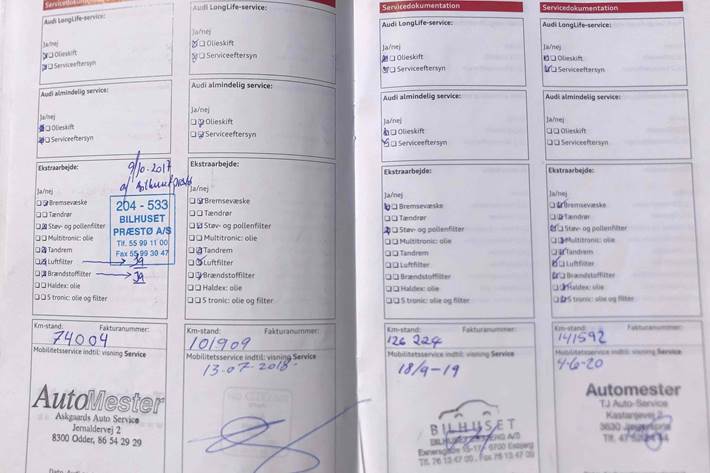 Servicedokumentation
Audi LongLife-service:
Ja/nej
Olieskift
Serviceeftersyn
Audi almindelig service:
Ja/nej
Olieskift
Serviceeftersyn
Ekstraarbejde:
9/10-2017
Ja/nej
Bremsevæske
Tændrør
Støv- og pollenfilter
Multitronic: olie
Tandrem
Luftfilter
Ja
Brændstoffilter
Ja
Haldex: olie
S tronic: olie og filter
204 - 533
BILHUSET
PRÆSTØ A/S
Tlf. 55 99 11 00
Fax 55 99 30 47
Km-stand: Fakturanummer:
74004
Mobilitetsservice indtil: visning Service
AutoMester
Askgaards Auto Service
Jernaldervej 2
8300 Odder, 86 54 29 29
Audi LongLife-service:
Ja/nej
Olieskift
Serviceeftersyn
Audi almindelig service:
Ja/nej
Olieskift
Serviceeftersyn
Ekstraarbejde:
Ja/nej
Bremsevæske
Tændrør
Støv- og pollenfilter
Multitronic: olie
Tandrem
Luftfilter
Brændstoffilter
Haldex: olie
S tronic: olie og filter
Km-stand: Fakturanummer:
101909
Mobilitetsservice indtil: visning Service
13-07-2018
Servicedokumentation
Audi LongLife-service:
Ja/nej
Olieskift
Serviceeftersyn
Audi almindelig service:
Ja/nej
Olieskift
Serviceeftersyn
Ekstraarbejde:
Ja/nej
Bremsevæske
Tændrør
Støv- og pollenfilter
Multitronic: olie
Tandrem
Luftfilter
Brændstoffilter
Haldex: olie
S tronic: olie og filter
Km-stand: Fakturanummer:
126 224
Mobilitetsservice indtil: visning Service
18/9-19
BILHUSET
6700 Esbjerg
Tlf. 76 13 47 00
Servicedokumentation
Audi LongLife-service:
Ja/nej
Olieskift
Serviceeftersyn
Audi almindelig service:
Ja/nej
Olieskift
Serviceeftersyn
Ekstraarbejde:
Ja/nej
Bremsevæske
Tændrør
Støv- og pollenfilter
Multitronic: olie
Tandrem
Luftfilter
Brændstoffilter
Haldex: olie
S tronic: olie og filter
Km-stand: Fakturanummer:
141592
Mobilitetsservice indtil: visning Service
4-6-20
Automester
TJ Auto-Service
Kastanjevej 2
3630